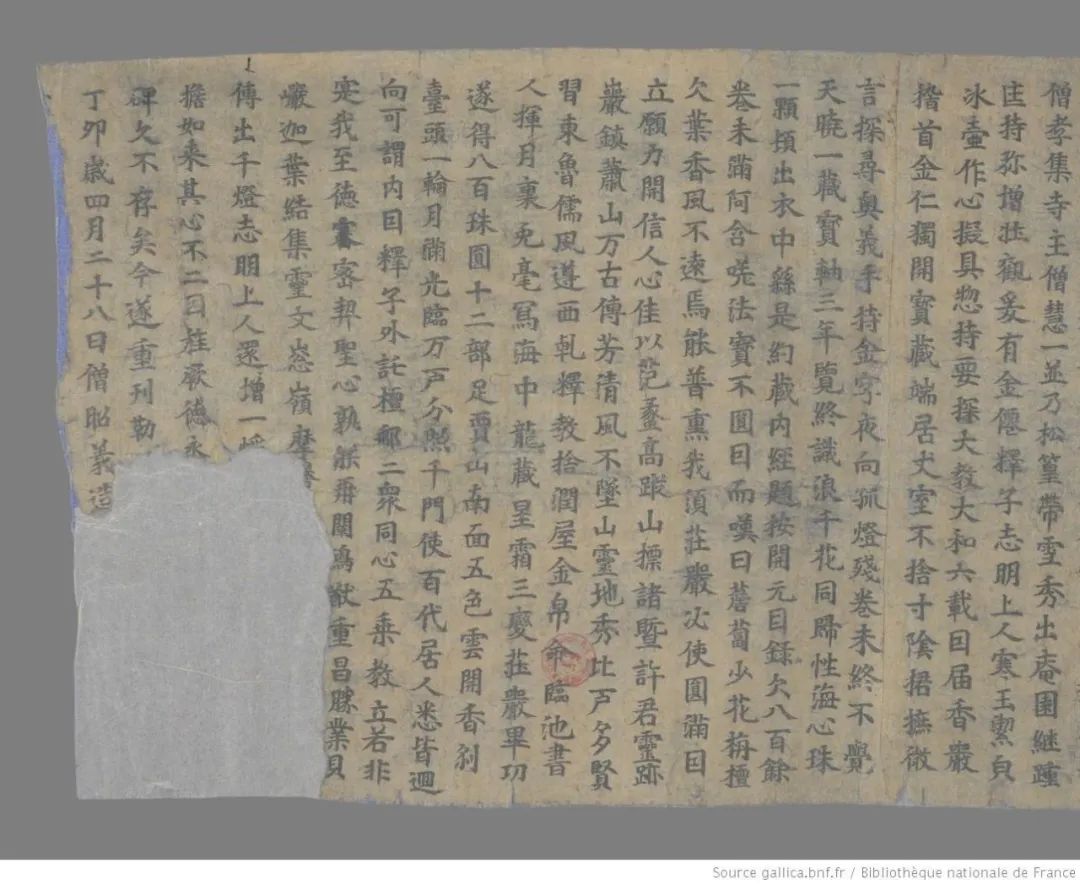 僧孝集寺主僧慧一並乃松篁帶雪秀出庵園継踵
住持弥增壯觀爰有金僊釋子志明上人寒玉潔貞
氷壷作心擬具惣持要探大教大和六載因届香嚴
揩首金仁獨開寶藏端居丈室不捨寸陰捃摭微
言探尋奥義手持金字夜向孤燈殘卷未終不覺
天曉一藏寶軸三年覽終識浪千花同歸性海心珠
一顆頓出衣中繇是約藏内經題按開元目録欠八百餘
卷未滿阿含嘆法寶不圓因而嘆曰薝蔔少花栴檀
欠葉香風不遠焉能普熏我須莊嚴必使圓滿因
立願力開信人心佳以範蠡高蹤山摽諸暨許君靈跡
巖鎮蕭山万古傳芳清風不墜山靈地秀比戸多賢
習東魯儒風遵西乹釋教捨潤屋金帛命臨池書
人揮月裏兎毫寫海中龍藏星霜三變莊嚴畢功
遂得八百珠圓十二部足賈山南面五色雲開香刹
臺頭一輪月滿光臨万戸分照千門使百代居人悉皆迴
向可謂内因釋子外託檀那二衆同心五乘教立若非
寔我至德審密契聖心孰能再闡鴻猷重昌勝業貝
巖迦葉結集靈文葱嶺摩
傳出千燈志明上人還增一
擔如来其心不二因旌厥德永
碑久不存矣今遂重刊勒
丁卯歳四月二十八日僧昭義造
Source gallica.bnf.fr / Bibliothèque nationale de France